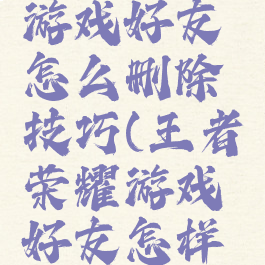 游戏好友
怎么删除
技巧(王者
荣耀游戏
好友怎样